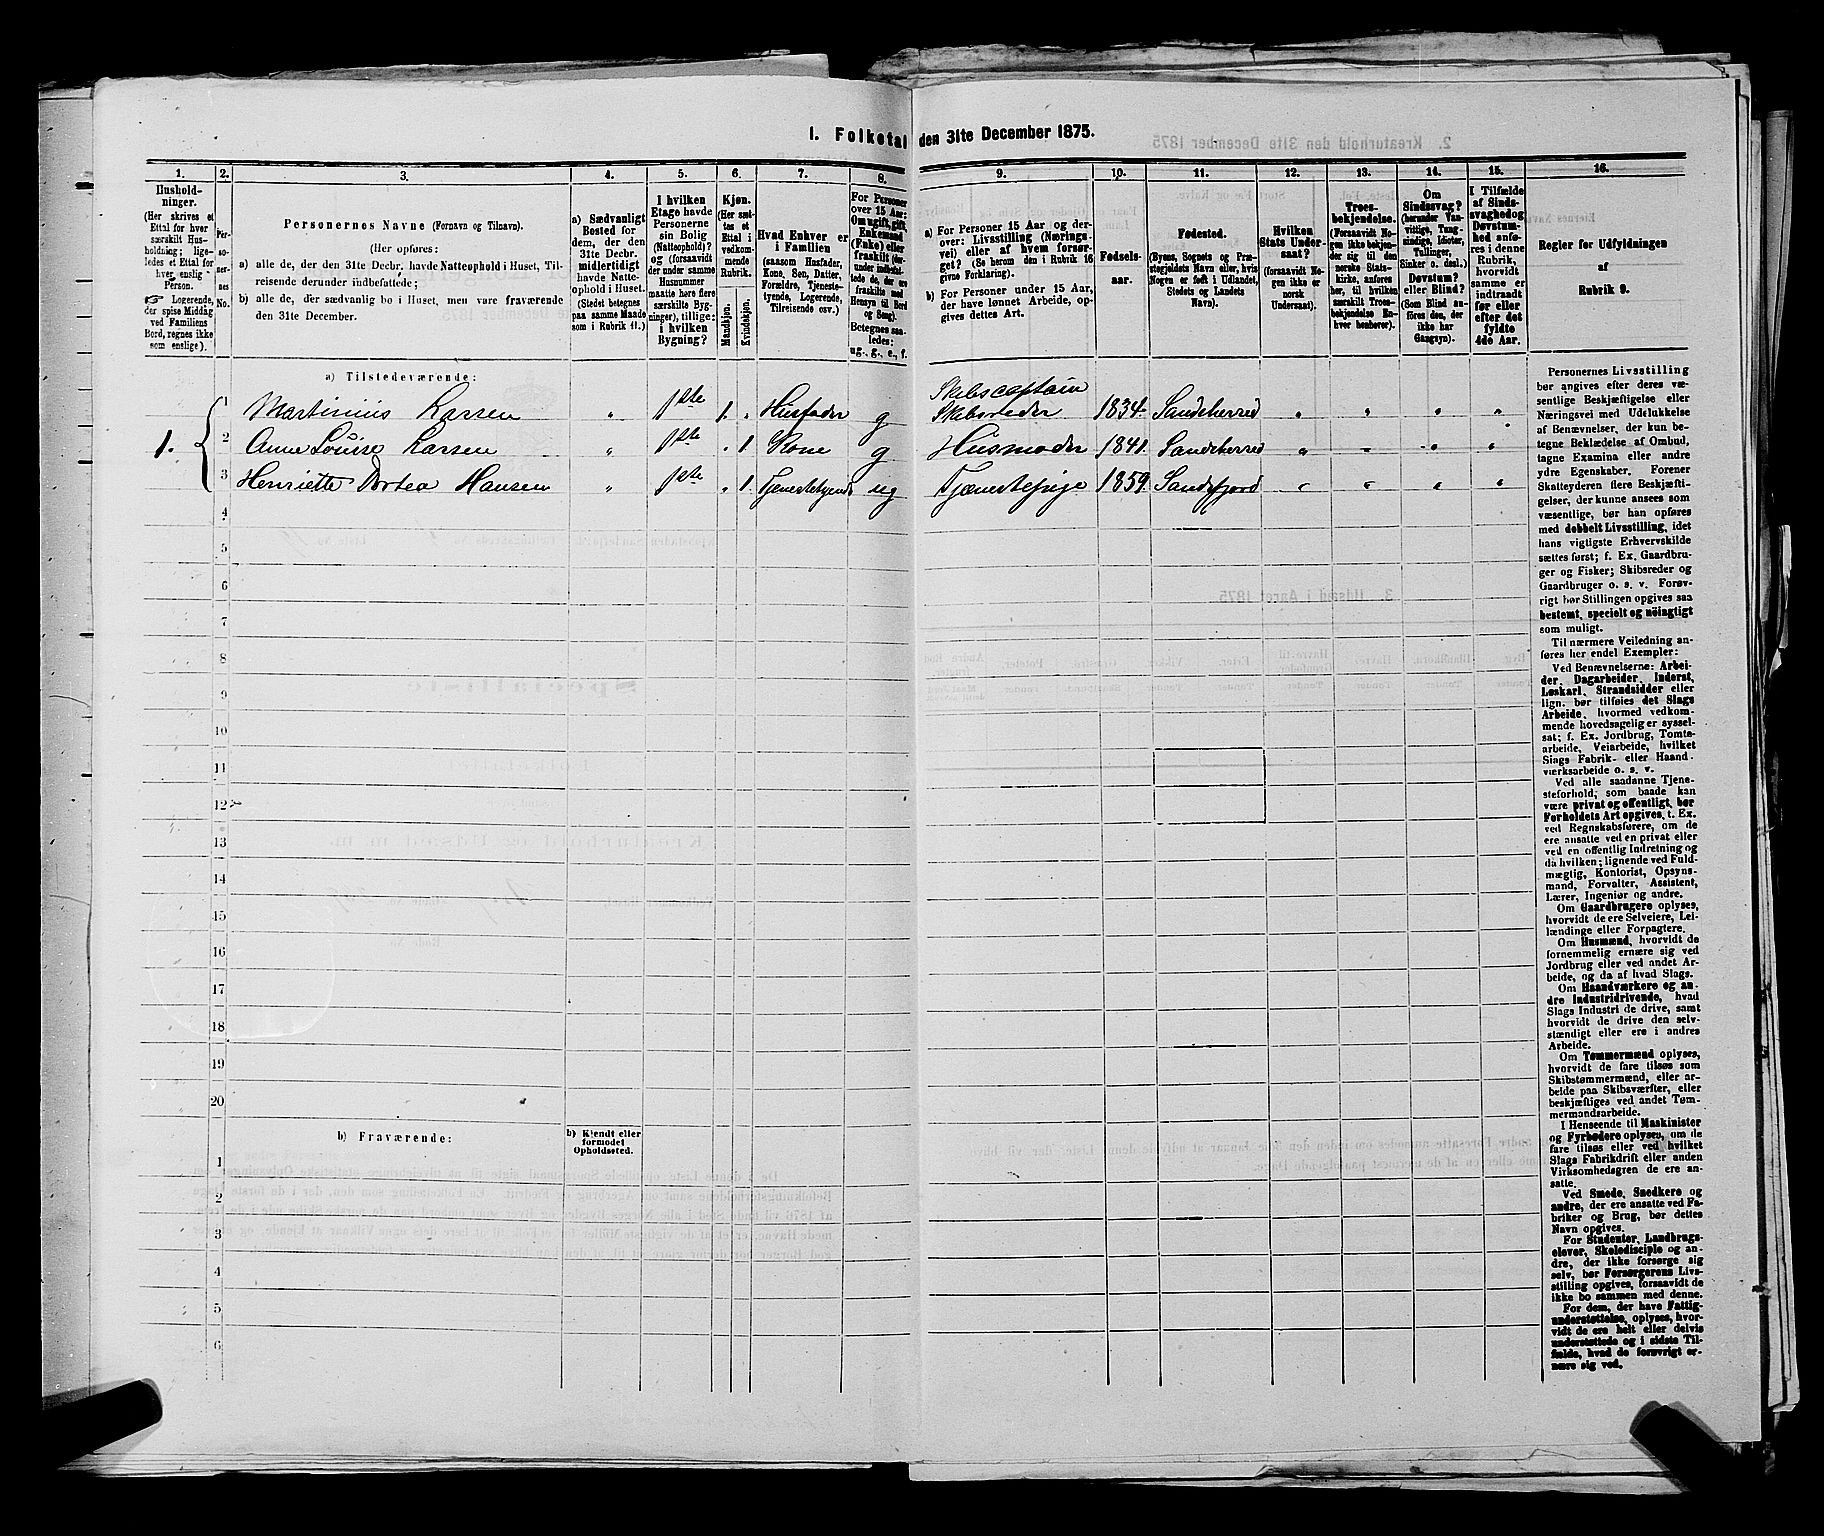 1. Folketal den 31te December 1875.
1. 2. 3. 4. 5. 6. 7. 8. 9. 10. 11. 12. 13. 14. 15. 16.
Hushold-
ninger.
(Her skrives et
Ettal for hver
særskilt Hus-
holdning; lige-
ledes et Ettal for
hver enslig
Person.
☞ Logerende,
der spise Middag
ved Familiens
Bord, regnes ikke
som enslige).
Per-
so-
ner-
nes
No.
Personernes Navne (Fornavn og Tilnavn).
(Her opføres:
a) alle de, der den 31te Decbr. havde Natteophold i Huset, Til-
reisende derunder indbefattede;
b) alle de, der sædvanlig bo i Huset, men vare fraværende
den 31te December.
a) Sædvanligt
Bosted for
dem, der den
31te Decbr.
midlertidigt
havde Natte-
ophold i Huset.
(Stedet betegnes
paa samme Maade
som i Rubrik 11.)
I hvilken
Etage havde
Personerne
sin Bolig
(Natteophold)?
og (forsaavidt
der under samme
Husnummer
maatte høre flere
særskilte Byg-
ninger), tillige:
i hvilken
Bygning?
Kjøn.
(Her sæt-
tes et
Ettal i
vedkom-
mende
Rubrik.
Mandkjøn.
Kvindekjøn.
Hvad Enhver er
i Familien
(saasom Husfader,
Kone, Søn, Datter,
Forældre, Tjeneste-
tyende, Logerende,
Tilreisende osv.)
For Personer
over 15 Aar:
Om ugift, gift,
Enkemand
(Enke) eller
fraskilt
Betegnes saa-
ledes:
ug., g., e., f.
a) For Personer 15 Aar og der-
over: Livsstilling (Nærings-
vei) eller af hvem forsør-
get? (Se herom den i Rubrik 16
givne Forklaring).
b) For Personer under 15 Aar,
der have lønnet Arbeide, op-
gives dettes Art.
Fødsels-
aar.
Fødested.
(Byens, Sognets og Præ-
stegjeldets Navn eller, hvis
Nogen er født i Udlandet,
Stedets og Landets
Navn).
Hvilken
Stats Under-
saat?
(forsaavidt No-
gen ikke er
norsk
Undersaat).
Troes-
bekjendelse.
(Forsaavidt No-
gen ikke bekjen-
der sig til den
norske Stats-
kirke, anføres
her, til hvilken
særskilt Troes-
bekjendelse En-
hver henhører).
Om
Sindssvag?
(herunder Van-
vittige, Tung-
sindige, Idioter,
Tullinger,
Sinker o. desl.)
Døvstum?
eller Blind?
(Som Blind an-
føres den, der
ikke har
Gangsyn).
I Tilfælde
af Sinds-
svaghed og
Døvstum-
hed anfø-
res i denne
Rubrik,
hvorvidt
samme er
indtraadt
før eller
efter det
fyldte
4de Aar.
Regler for Udfyldningen
af
Rubrik 9.
a) Tilstedeværende:
1. 1 Martinius Larsen " 1ste 1. " Husfader g Skibscaptain Skibsreder 1834. Sandeherred " " " "
2 Anne Louise Larsen " 1ste " 1 Kone g Husmoder 1841. Sandeherred " " " "
3 Henriette Dortea Hansen " 1ste " 1. Tjenestetyende ug Tjenestepige 1859. Sandefjord " " " "
4
5
6
7
8
9
10
11
12
13
14
15
16
17
18
19
20
b) Fraværende:
b) Kjendt eller
formodet
Opholdssted.
1
2
3
4
5
6
Personernes Livsstilling
bør angives efter deres væ-
sentlige Beskjæftigelse eller
Næringsvei med Udelukkelse
af Benævnelser, der kun be-
tegne Beklædelse af Ombud,
tagne Examina eller andre
ydre Egenskaber. Forener
Skatteyderen flere Beskjæfti-
gelser, der kunne ansees som
væsentlige, bør han opføres
med dobbelt Livsstilling, idet
hans vigtigste Erhvervskilde
sættes først; f. Ex. Gaardbru-
ger og Fisker; Skibsreder og
Gaardbruger o. s. v. Forøv-
rigt bør Stillingen opgives saa
bestemt, specielt og nöiagtigt
som muligt.
Til nærmere Veiledning an-
føres her endel Exempler:
Ved Benævnelserne: Arbei-
der, Dagarbeider, Inderst,
Løskarl, Strandsidder eller
lign. bør tilføies det Slags
Arbeide, hvormed vedkom-
mende hovedsagelig er syssel-
sat; f. Ex. Jordbrug, Tomte-
arbeide, Veiarbeide, hvilket
Slags Fabrik- eller Haand-
værksarbeide o. s. v.
Ved alle saadanne Tjene-
steforhold, som baade kan
være privat og offentligt, bør
Forholdets Art opgives, t. Ex.
ved Regnskabsførere, om de
ere ansatte ved en privat eller
ved en offentlig Indretning og
da hvilken; lignende ved Fuld-
mægtig, Kontorist, Opsyns-
mand, Forvalter, Assistent,
Lærer, Ingeniør og andre.
Om Gaardbrugere oplyses,
hvorvidt de ere Selveiere, Lei-
lændinge eller Forpagtere.
Om Husmænd, hvorvidt de
fornemmelig ernære sig ved
Jordbrug eller ved andet Ar-
beide, og da af hvad Slags.
Om Haandværkere og an-
dre Industridrivende, hvad
Slags Industri de drive, samt
hvorvidt de drive den selv-
stændigt eller ere i andres
Arbeide.
Om Tømmermænd oplyses,
hvorvidt de fare tilsøs som
Skibstømmermænd, eller ar-
beide paa Skibsværfter, eller
beskjæftiges ved andet Tøm-
mermandsarbeide.
I Henseende til Maskinister
og Fyrbødere oplyses, om de
fare tilsøs eller ved hvilket
Slags Fabrikdrift eller anden
Virksomhedsgren de ere an-
satte.
Ved Smede, Snedkere og
andre, der ere ansatte ved Fa-
briker og Brug, bør dettes
Navn opgives.
For Studenter, Landbrugs-
elever, Skoledisciple og an-
dre, der ikke forsørge sig
selv, bør Forsørgerens Livs-
stilling opgives, forsaavidt de
ikke bo sammen med denne.
For dem, der have Fattig-
understøttelse, oplyses, hvor-
vidt de ere helt eller delvis
understøttede og i sidste Til-
fælde, hvad de forøvrigt er-
nære sig ved.